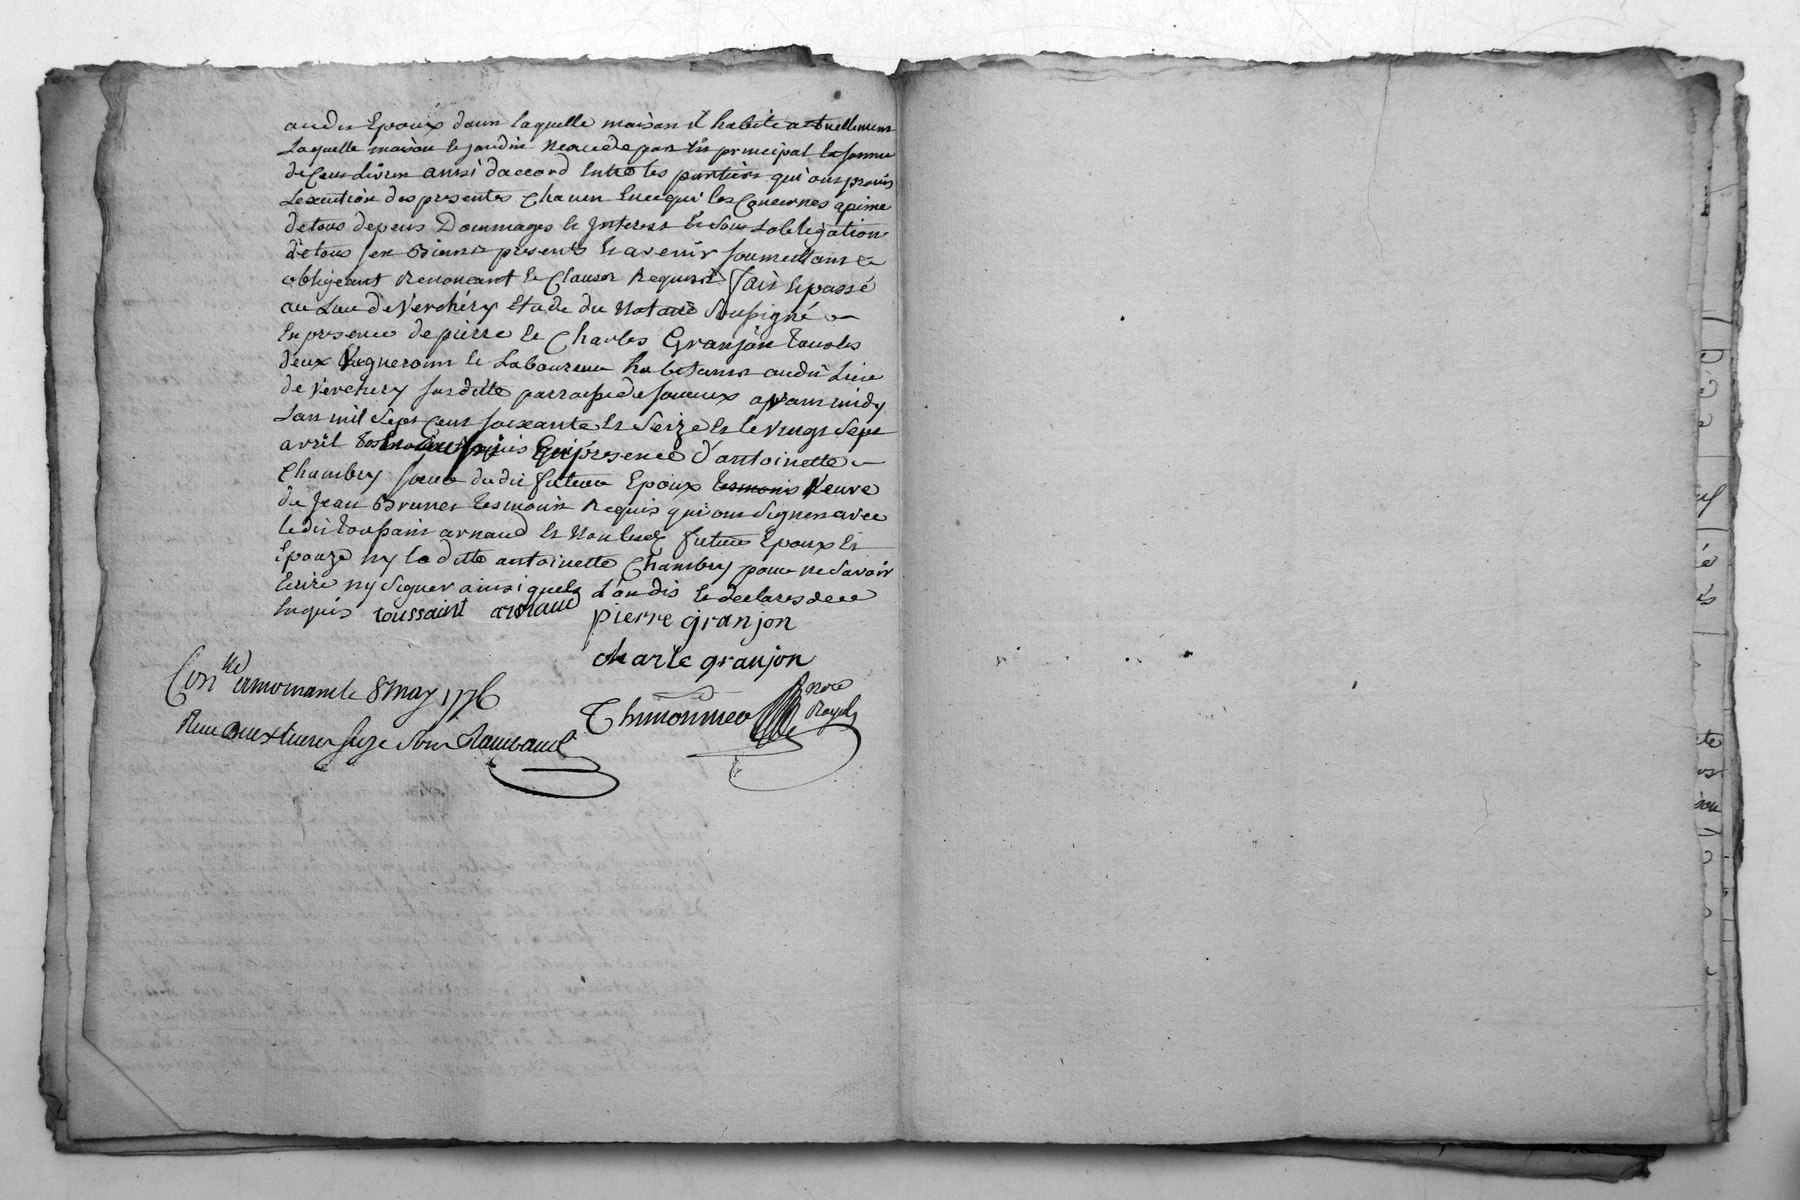 audit Epoux dans laquelle maison il habite actuellement
laquelle maison le jardin nexcede pas En principal la somme
de Cent livres ainsi daccord Entre les parties qui ont promis
Lexecution des presentes Chacun Ence qui les Concernes apeine
detous depens Dommages et Interest et Sous Lobligation
detous ses Biens presents et avenir soumettant et
obligeant Renoncant et Clauses Requises fait et passé
au Lieu de Verchéry Etude du Notaire Soussigné
En presence de pierre et Charles Granjon tous les
deux Vigneron et Laboureur habitants audit Lieu
de Verchery susditte parroisse de avant midy
Lan mil Sept Cent soixante et Seize et le vingt Sept
avril Enpresence d'antoinette
Chambry soeur dudit futeur Epoux tesmoins veuve
de Jean Brunet tesmoins Requis qui ont Signes avec
ledit toussaint arnaud et non lesdt futeurs Epoux et
Epouze ny laditte antoinette Chambry pour ne Savoir
Ecrire ny Signer ainsi quels l'ont dis et declares de ce
Enquis toussaint arnaud pierre granjon
charle granjon
Con.llé amornand le 8 may 1776
Thimonnier Nore Royal
Reçu seize sous Rambaud